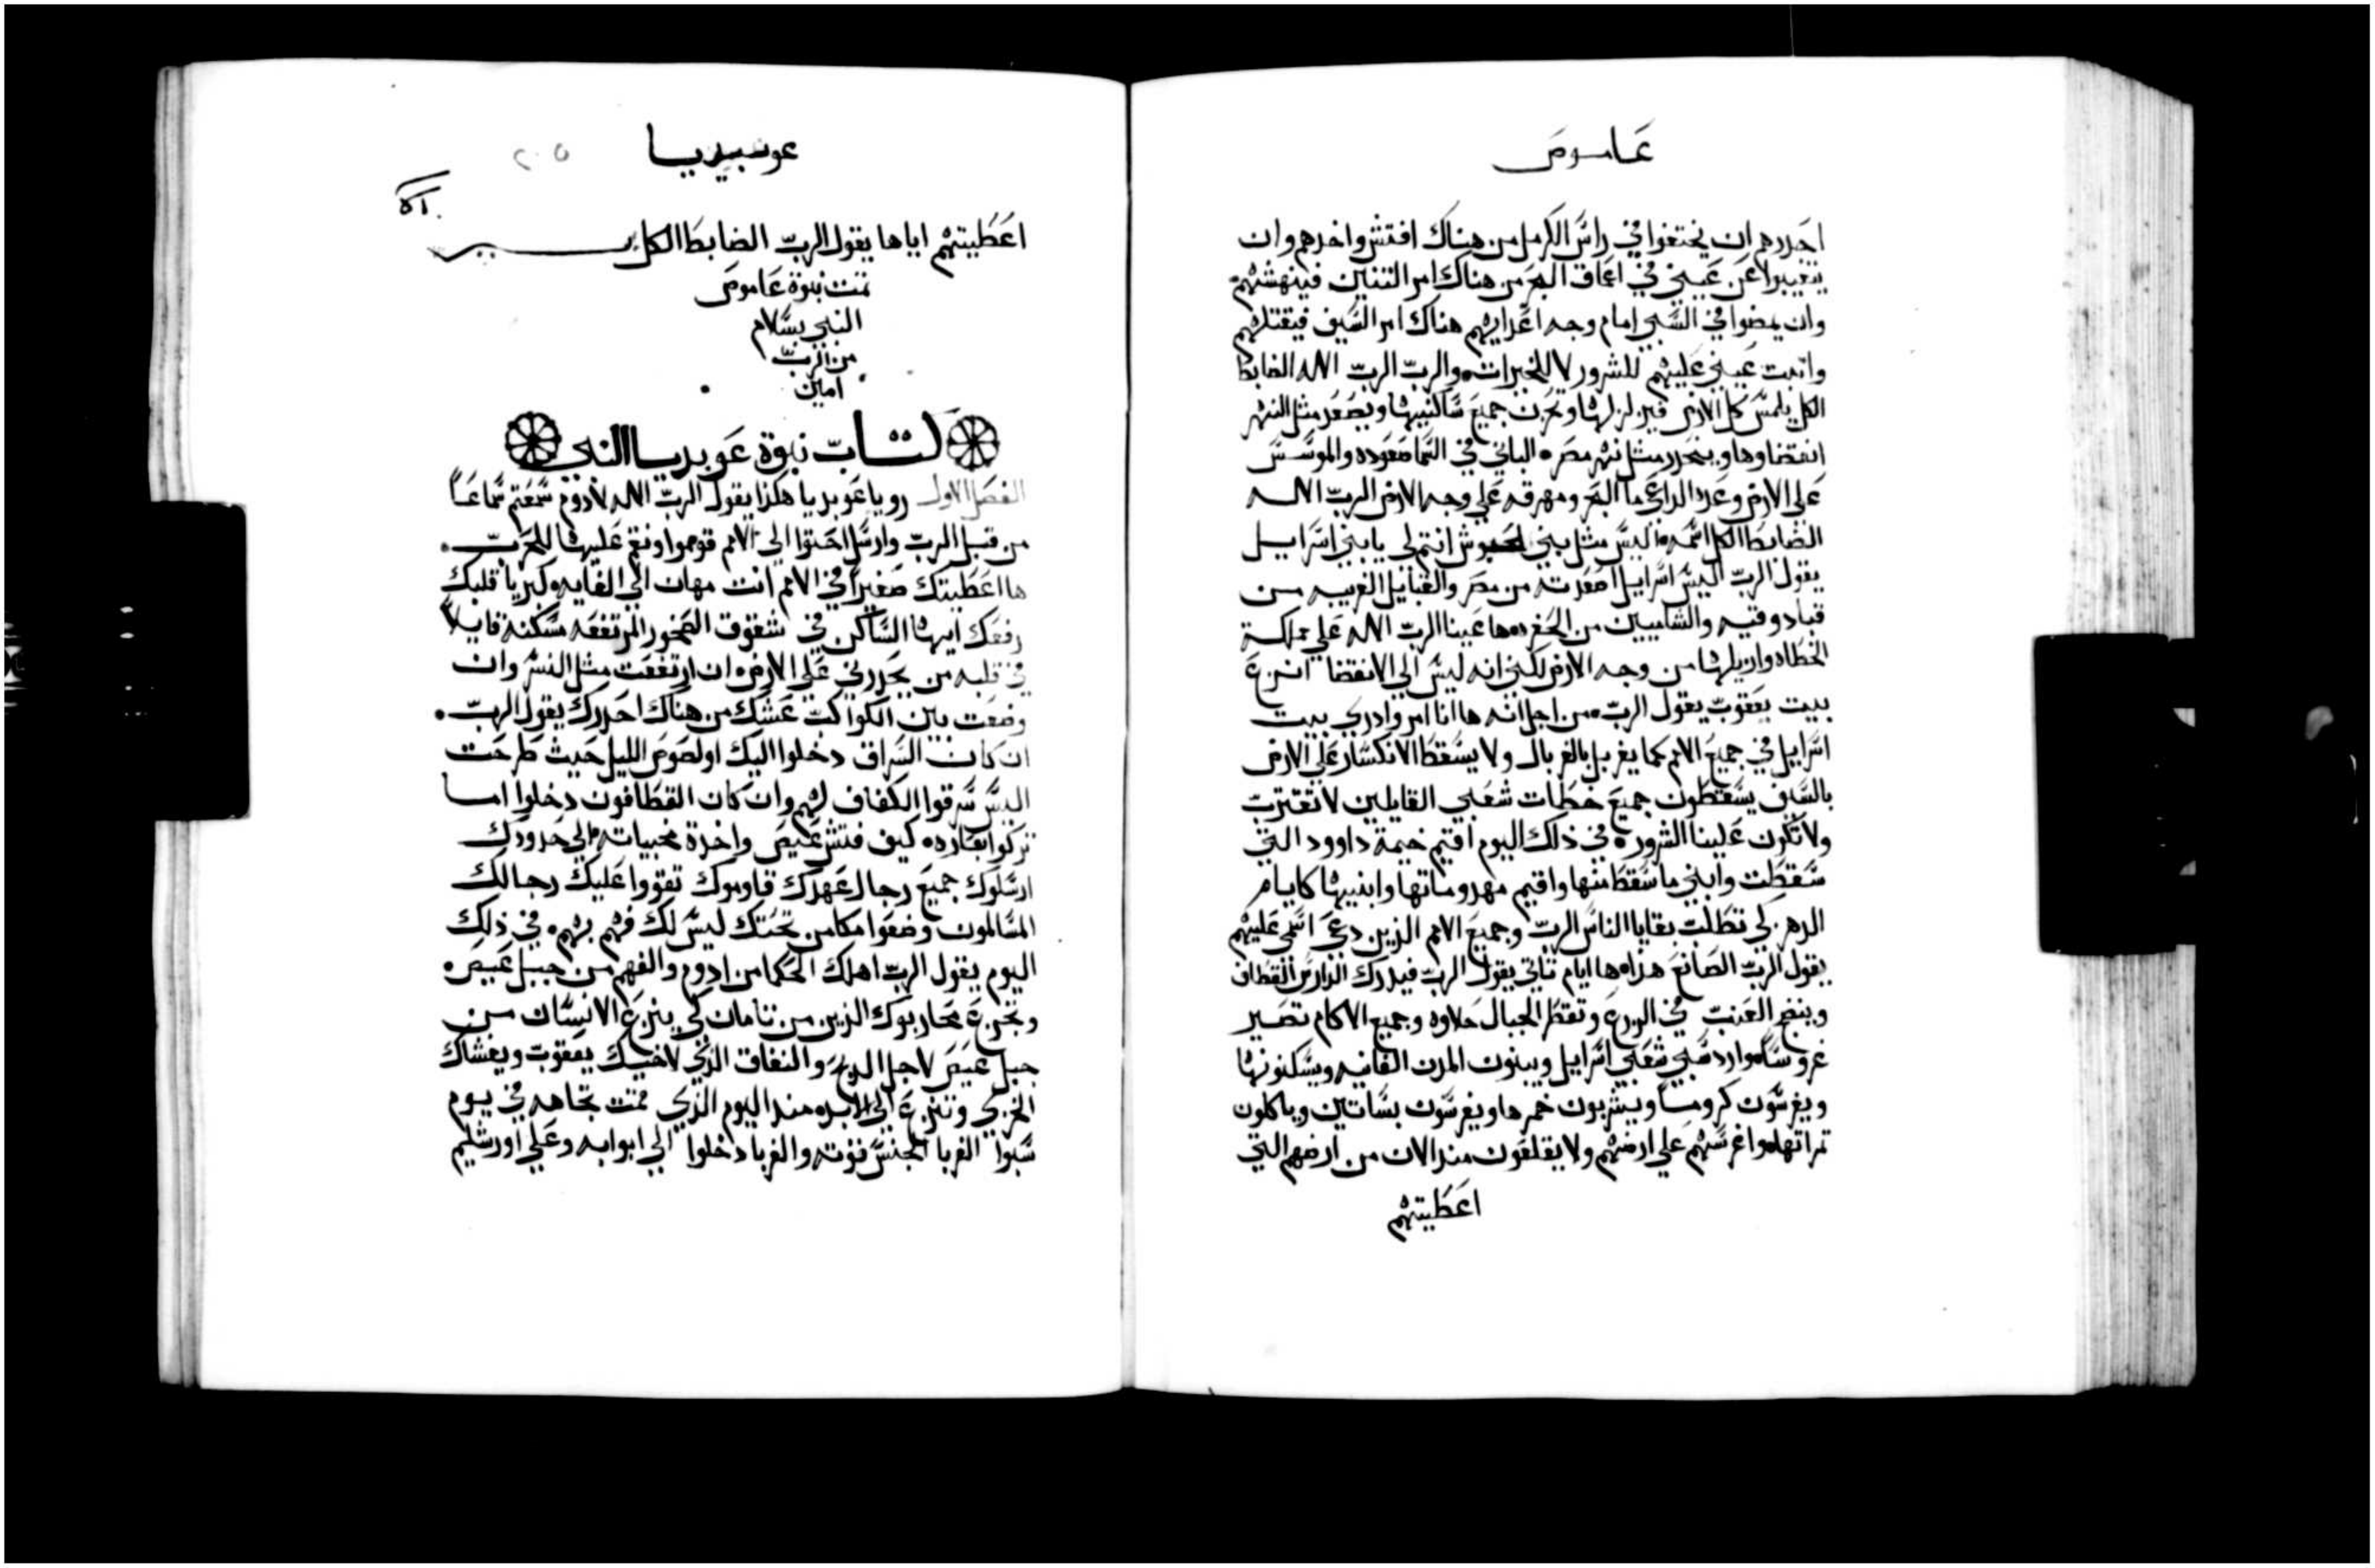 عاموص
احدرهم ان يختفوا في راس الكرمل من هناك افتش واخدهم وان
يتغيبوا عن عيني في اعماق البحر من هناك امر التنين فينهشهم
وان يمضوا في السبي امام وجه اعدايهم هناك امر السيف فيقتلهم
واثبت عيني عليهم للشرور لا للخيرات والرب الرب الاله الضابط
الكل يلمس كل الارض فيزلزلها وتحزن جميع ساكنيها ويصعد مثل النهر
انقضاوها وينحدر مثل نهر مصر الباني في السما صعوده والموسس
على الارض وعده الداعي ما البحر ومهرقه على وجه الارض الرب الاله
الضابط الكل اسمه اليس مثل بني الحبوش انتم لي يا بني اسراييل
يقول الرب اليس اسراييل اصعدته من مصر والقبايل الغريبه من
قبادوقيه والشاميين من الحفره ها عينا الرب الاله على مملكة
الخطاه وازيلها من وجه الارض لكني انه ليس الي الانقضا انزع
بيت يعقوب يقول الرب من اجل انه ها انا امر وادري بيت
اسراييل في جميع الامم كما يغربل بالغربال ولا يسقط الانكسار على الارض
بالسيف يسقطون جميع خطات شعبي القايلين لا تقترب
ولا تكون علينا الشرور في ذلك اليوم اقيم خيمة داوود التي
سقطت وابني ما سقط منها واقيم مهدوماتها وابنيها كايام
الدهر كي تطلب بقايا الناس الرب وجميع الامم الذين دعي اسمي عليهم
يقول الرب الصانع هذا ها ايام تاتي يقول الرب فيدرك الدارس القطاف
وينضج العنب في الزرع وتقطر الجبال حلاوه وجميع الاكام تصير
غروسا وارد سبي شعبي اسراييل ويبنون المدن الفانيه ويسكنونها
ويغرسون كروما ويشربون خمرها ويغرسون بساتين وياكلون
تمراتها واغرسهم على ارضهم ولا يقلعون مند الان من ارضهم التي
اعطيتهم
عوبيديا
٢٠٥
اعطيتهم اياها يقول الرب الضابط الكل
تمت نبوة عاموص
النبي بسلام
من الرب
امين
كتاب نبوة عوبديا النبي
الفصل الاول رويا عوبديا هكدا يقول الرب الاله لادوم سمعتم سماعا
من قبل الرب وارسل احتوا الي الامم قوموا ونقم عليها للحرب
ها اعطيتك صغيرا في الامم انت مهان الي الغايه كبريا قلبك
رفعك ايها الساكن في شقوق الصخور المرتفعه مسكنه قايلا
في قلبه من يحدرني على الارض ان ارتفعت مثل النسر وان
وضعت بين الكواكب عشك من هناك احدرك يقول الرب
ان كان السراق دخلوا اليك او لصوص الليل حيث طرحت
اليس سرقوا الكفاف لهم وان كان القطافون دخلوا اما
تركوا بعاره كيف فتش عيص واخدة مخبياته الي حدودك
ارسلوك جميع رجال عهدك قاوموك تقووا عليك رجالك
المسالمون وضعوا مكامن تحتك ليس لك فهم بهم في ذلك
اليوم يقول الرب اهلك الحكما من ادوم والفهم من جبل عيص
وتجزع محاربوك الذين من تامان كي ينزع الانسان من
جبل عيص لاجل الدبح والنفاق الذي لاخيك يعقوب ويغشاك
الخزي وتنزع الي الابد مند اليوم الذي قمت تجاهه في يوم
سبوا الغربا الجنس قوته والغربا دخلوا الي ابوابه وعلي اورشليم